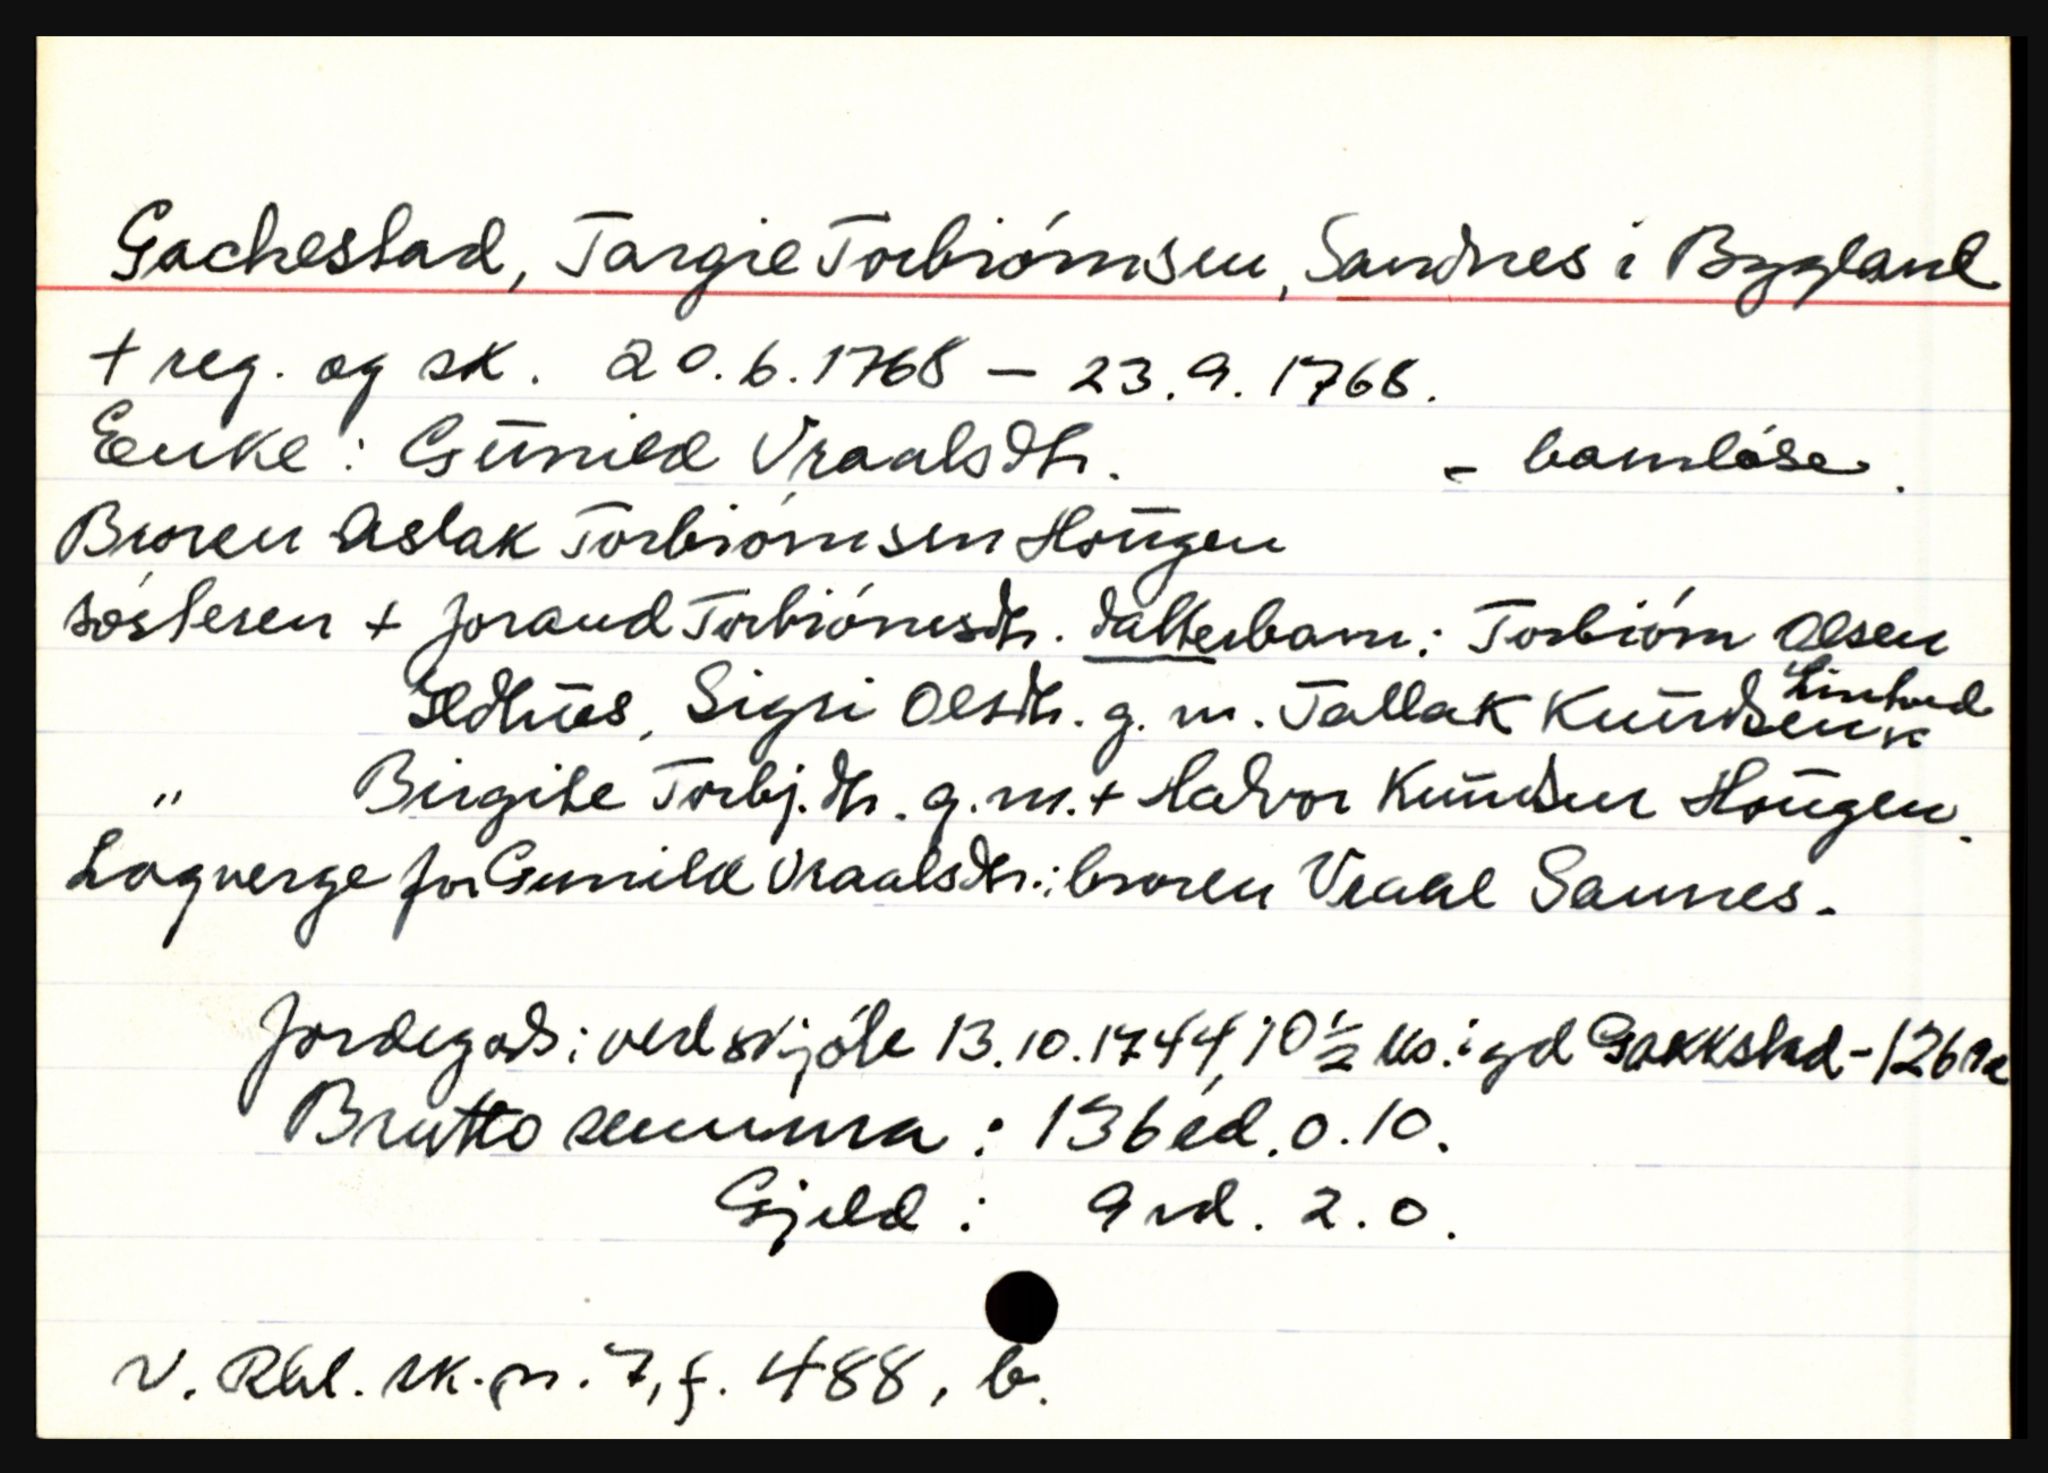 Gachestad, Targie Torbiórnsen, Sandnes i Bygland
+ reg. og sk. 20.6.1768 – 23.9.1768.
Enke: Gūnild Vraalsdtr. - barnlóse.
Broren Aslak Torbiórnsen Hoūgen
sósteren + Jorand Torbiórnsdtr. datterbarn: Torbiórn Olsen
Sigri Olsdtr. g. m. Tallak Knūdsen
" Birgite Torbj.dtr. g. m. + Halvor Knūdsen Hoūgen.
Lagverge for Gunild Vraalsdtr.: broren Vraal Sannes.
Jordegods: ved skjóte 13.10.1744, 10 1/2 ks. i gd Gakkstad - 126 rd
Brutto summa: 136 rd. 0. 10.
Gjeld: 9 rd. 2. 0.
V. Rbl. sk. pr. 7, f. 488, b.